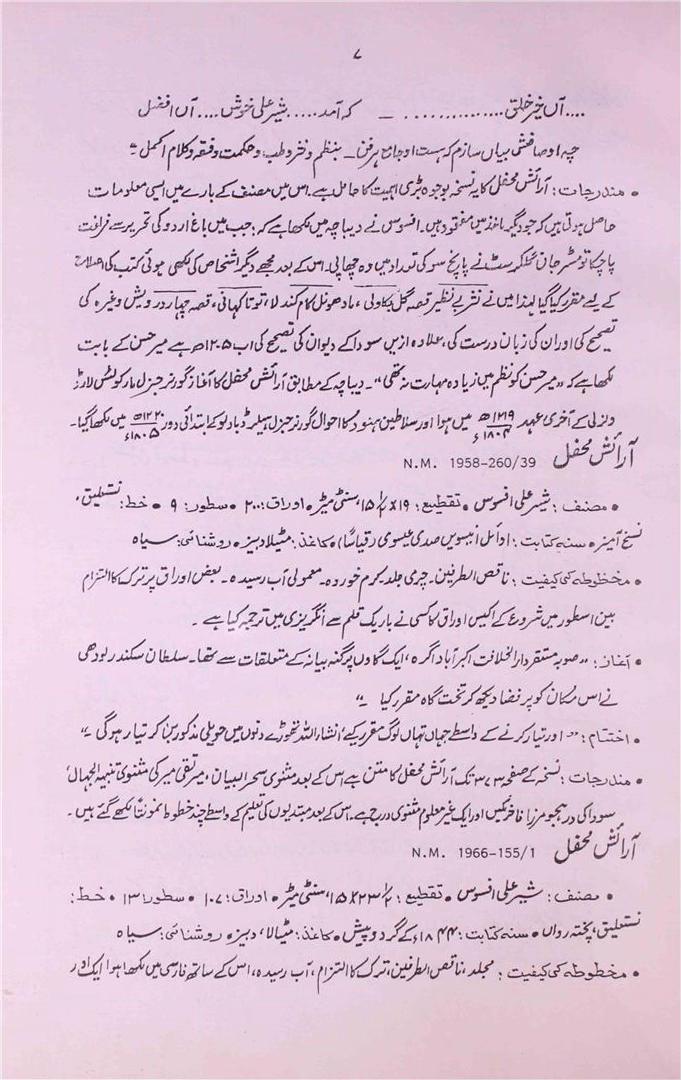 ۷
....آں خیر خلقی................ ـ کہ آمد.....شیر علی خوش....آں افضل
چہ اوصافش بیاں سازم کہ ہست او جامع ہر فن ـ بنظم و نثر و طب و حکمت و فقہ و کلام اکمل ـ"
• مندرجات: آرائش محفل کا یہ نسخہ بوجوہ بڑی اہمیت کا حامل ہے۔ اس میں مصنف کے بارے میں ایسی معلومات
حاصل ہوتی ہیں کہ جو دیگر ماخذ میں مفقود ہیں۔ افسوس نے دیباچہ میں لکھا ہے کہ: جب میں باغ اردو کی تحریر سے فراغت
پا چکا تو مسٹر جان گلکرسٹ نے پانچ سو کی تعداد میں وہ چھاپی۔ اس کے بعد مجھے دیگر اشخاص کی لکھی ہوئی کتب کی اصلاح
کے لیے مقرر کیا گیا لہٰذا میں نے نثر بے نظیر قصہ گل بکاولی، مادھونل کام کندلا، توتا کہانی، قصہ چہار درویش وغیرہ کی
تصحیح کی اور ان کی زبان درست کی، علاوہ ازیں سودا کے دیوان کی تصحیح کی اب ۱۲۰۵ھ ہے میر حسن کے بابت
لکھا ہے کہ "میر حسن کو نظم میں زیادہ مہارت نہ تھی"۔ دیباچہ کے مطابق آرائش محفل کا آغاز گورنر جنرل مارکوئس لارڈ
ولزلی کے آخری عہد ۱۲۱۹ھ / ۱۸۰۴ء میں ہوا اور سلاطین ہنود کا احوال گورنر جنرل بارلو کے ابتدائی دور ۱۲۲۰ھ / ۱۸۰۵ء میں لکھا گیا۔
آرائش محفل N.M. 1958-260/39
• مصنف: شیر علی افسوس • تقطیع: ۱۹ x ۱۵½، سنٹی میٹر • اوراق: ۲۰۰ • سطور: ۹ • خط: نستعلیق،
نسخ آمیز • سنہ کتابت: اوائل انیسویں صدی عیسوی (قیاساً) • کاغذ: مٹیلا دبیز • روشنائی: سیاہ
• مخطوطہ کی کیفیت: ناقص الطرفین۔ چرمی جلد۔ کرم خوردہ۔ معمولی آب رسیدہ۔ بعض اوراق پر ترک کا التزام
بین السطور میں شروع کے اکیس اوراق کا کسی نے باریک قلم سے انگریزی میں ترجمہ کیا ہے۔
• آغاز: "صوبہ مستقر دارالخلافت اکبرآباد آگرہ، ایک گاؤں پرگنہ بیانہ کے متعلقات سے تھا۔ سلطان سکندر لودھی
نے اس مکان کو پر فضا دیکھ کر تخت گاہ مقرر کیا ـ"
• اختتام: "اور تیار کرنے کے واسطے جہاں تہاں لوگ مقرر کیے، انشاء اللہ تھوڑے دنوں میں حویلی مذکور بن کر تیار ہوگی ـ"
• مندرجات: نسخہ کے صفحہ ۳۷۳ تک آرائش محفل کا متن ہے اس کے بعد مثنوی سحر البیان، میر تقی میر کی مثنوی تنبیہ الجہال،
سودا کی در ہجو مرزا فاخر مکیں اور ایک غیر معلوم مثنوی درج ہے۔ اس کے بعد مبتدیوں کی تعلیم کے واسطے چند خطوط نمونتاً لکھے گئے ہیں۔
آرائش محفل N.M. 1966-155/1
• مصنف: شیر علی افسوس • تقطیع: ۲۳½ x ۱۵، سنٹی میٹر • اوراق: ۱۰۷ • سطور: ۱۳ • خط:
نستعلیق، پختہ رواں • سنہ کتابت: ۱۸۴۴ء کے گرد و پیش • کاغذ: مٹیالا، دبیز • روشنائی: سیاہ
• مخطوطہ کی کیفیت: مجلد، ناقص الطرفین، ترک کا التزام، آب رسیدہ، اس کے ساتھ فارسی میں لکھا ہوا ایک اور